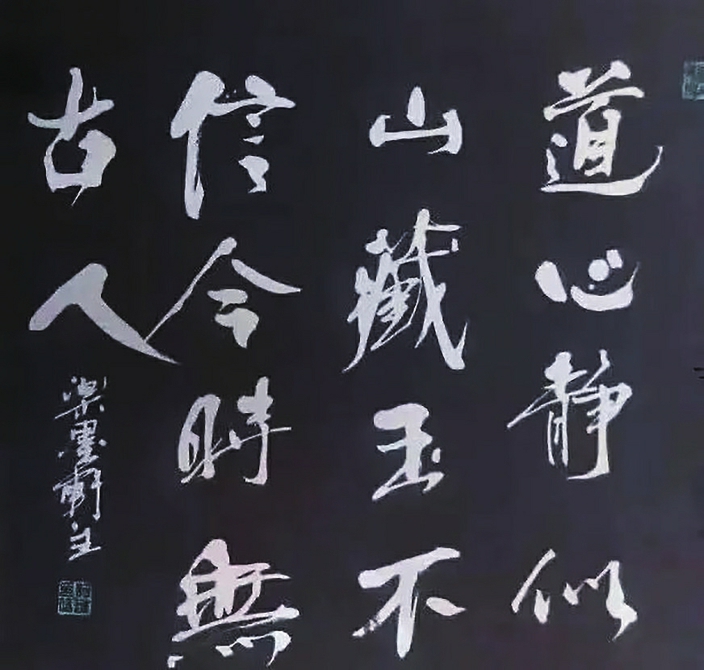 道心静似
山藏玉不
信今時無
古人
樂墨軒主